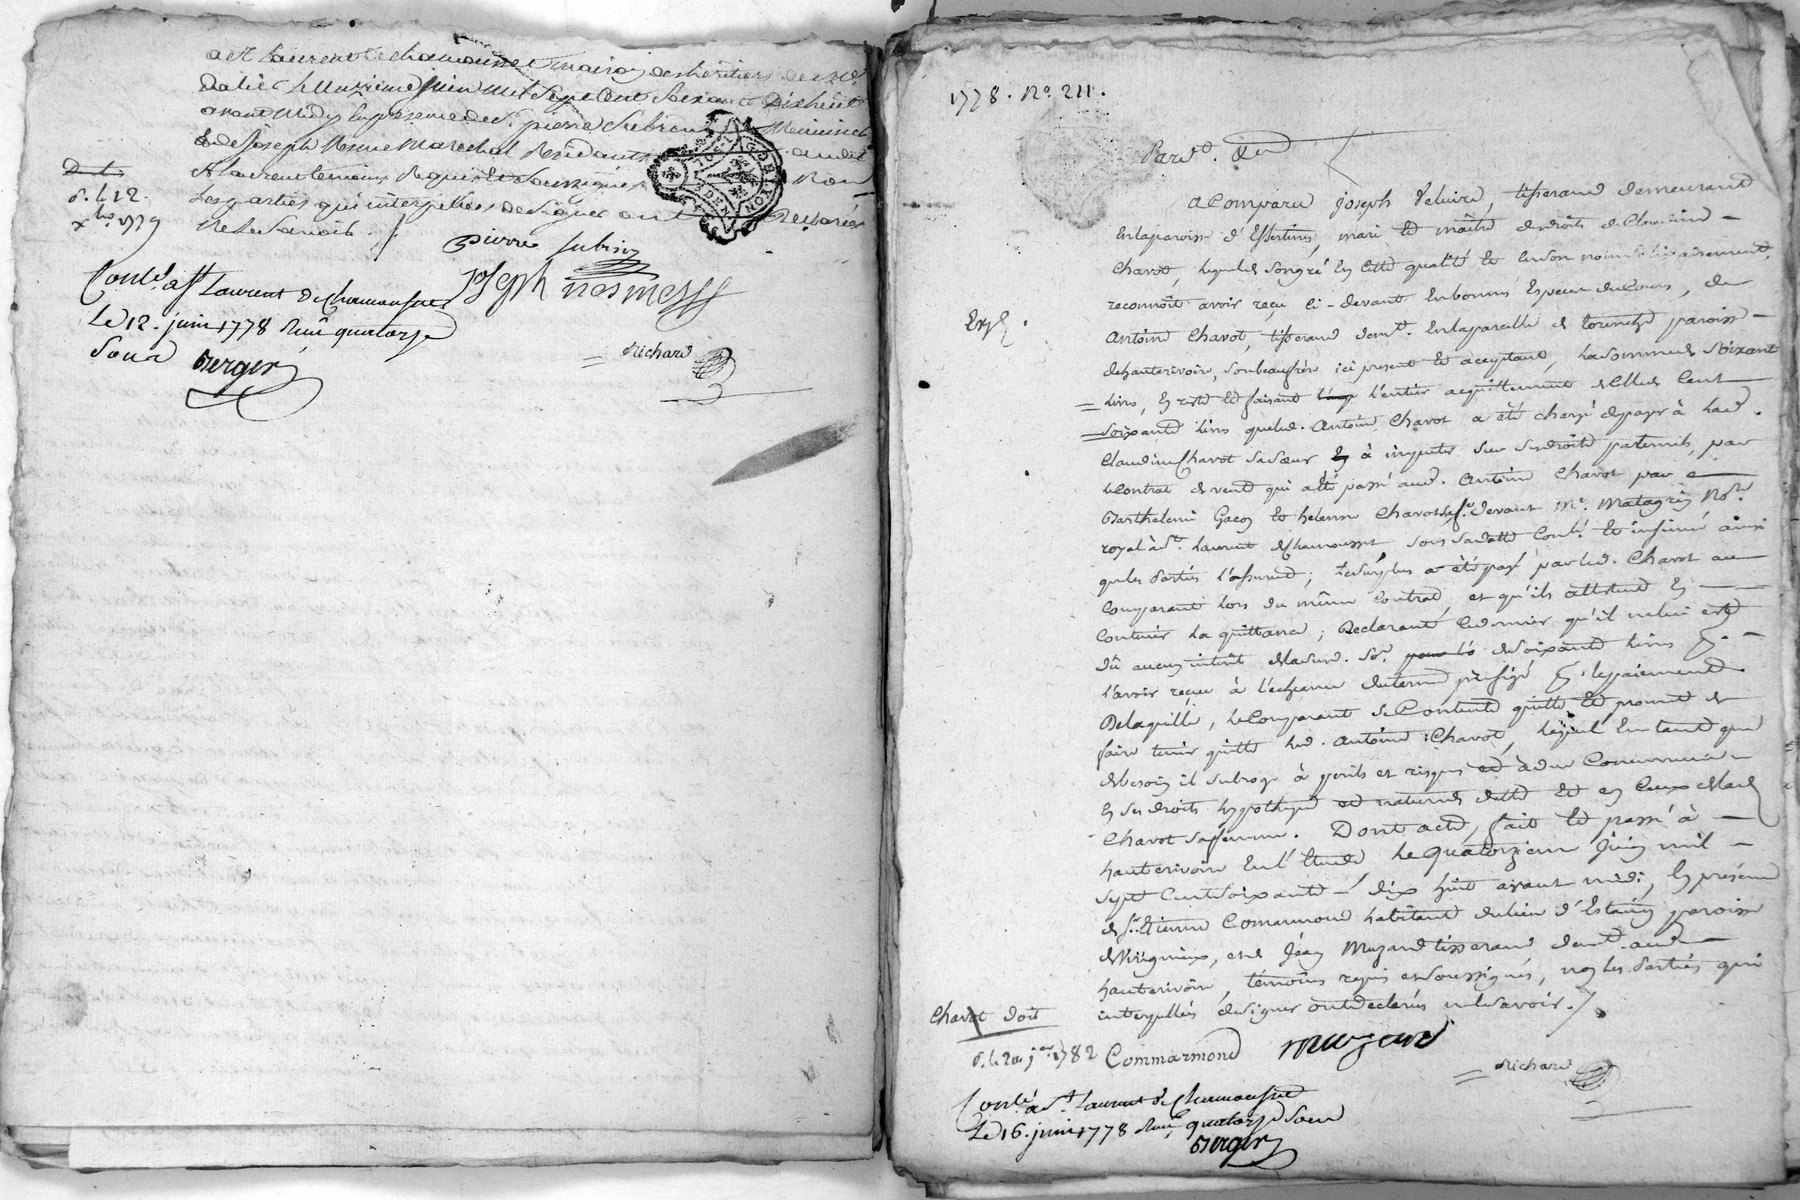 a St Laurent de chamousset maison des heritiers de me
Dalier Le unzieme Juin Mil Sept Cent Soixante Dixhuit
avant Midy En presence de Sr pierre Subrin
& de Joseph Nesme Marechal Residants audit
St Laurent temoins Requis Et Soussignés Non
Les parties qui interpellées de signer ont Declarés
Ne Le Savoir
d. l. 12.
xbre 1779
pierre subrin
Joseph nesmes
Contlé a St Laurent de Chamousset
Le 12. juin 1778 Reçu quatorze
Sous Berger
Richard
1778. No. 211.
Pard.
a Comparu Joseph Veluire, tisserand demeurant
En la paroisse d'Essertines, mari et maître des droits de Claudine
Chavot, lequel de son gré En cette qualité et en son nom solidairement,
reconnoît avoir reçu ci-devant En bonnes Especes du Cours, de
Antoine Chavot, tisserand demt. En la parcelle de tourville paroisse
Exp.
de hauterivoire, son beaufrère ici présent et acceptant, la somme de Soixante
livres, En reste et faisant l'entier acquittement de Celle de Cent
soixante livres que led. Antoine Chavot a été chargé de payer à lad.
Claudine Chavot sa sœur à imputer sur ses droits paternels, par
le Contrat de vente qui a été passé aud. Antoine Chavot par
Barthelemi Gacon et helenne Chavot sa fe. devant Me. Matagrin Nore.
royal à St. Laurent de Chamousset sous sa datte Contlé. et insinué ainsi
que les Parties l'assurent; le surplus a été payé par led. Chavot au
Comparant lors du même Contrat, et qu'ils attestent En
Contenir la quittance; Declarant Ce dernier qu'il ne lui est
dû aucun intérêt de lad. So. de soixante livres pr.
l'avoir reçue à l'echeance du terme préfigé pr. le paiement
De laquelle, le Comparant se Contente quitte et promet de
faire tenir quitte led. Antoine Chavot, lequel En tant que
de besoin il subroge à perils et risques et à due Concurrence
En ses droits hypotheques et nature de dette et en Ceux de lad.
Chavot sa femme. Dont acte, fait et passé à
hauterivoire En l'Etude Le quatorzieme Juin mil
sept Cent soixante dix huit avant midi, En présence
de Sr. Etienne Comarmond habitant du lieu d'Estaing paroisse
de Virigneux, et de Jean Mazard tisserand demt. aud.
hauterivoire, témoins requis et soussignés, non les Parties qui
interpellées de signer ont déclarés ne le savoir.
Chavot doit
d. le 20 jer. 1782
Commarmond
Richard
Contlé a St. Laurent de Chamousset
Le 16. juin 1778 Reçu quatorze Sous
Berger